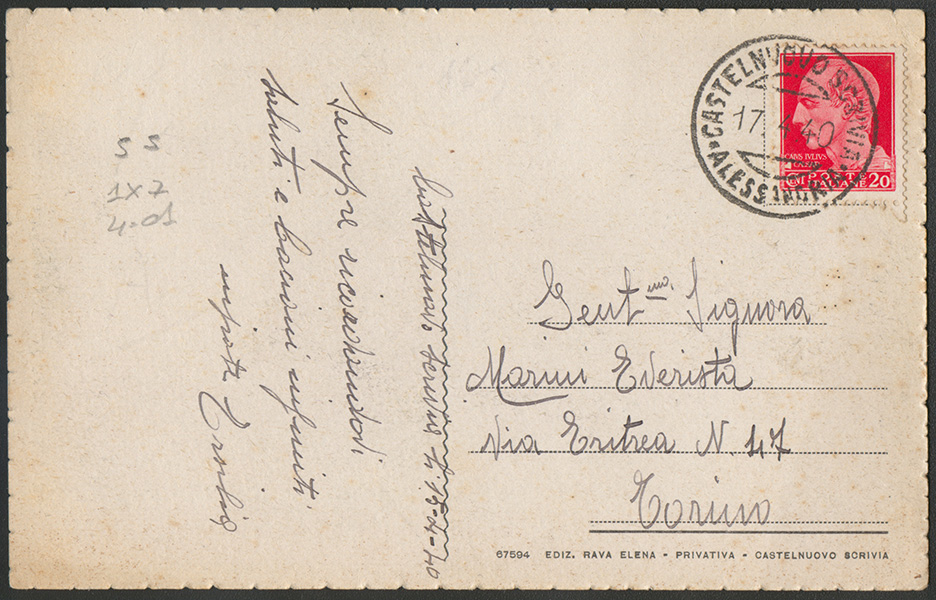 Sempre ricordandoti
saluti e bacioni infiniti
nipote Ersilia
Castelnuovo Scrivia li 15-4-40
5 5
1x7
4-01
CASTELNUOVO SCRIVIA
17.4.40
ALESSANDRIA
CAIVS IVLIVS
CAESAR
CENT POSTE ITALIANE 20
Gent.ma Signora
Marini Everista
Via Eritrea N. 47
Torino
67594 EDIZ. RAVA ELENA - PRIVATIVA - CASTELNUOVO SCRIVIA